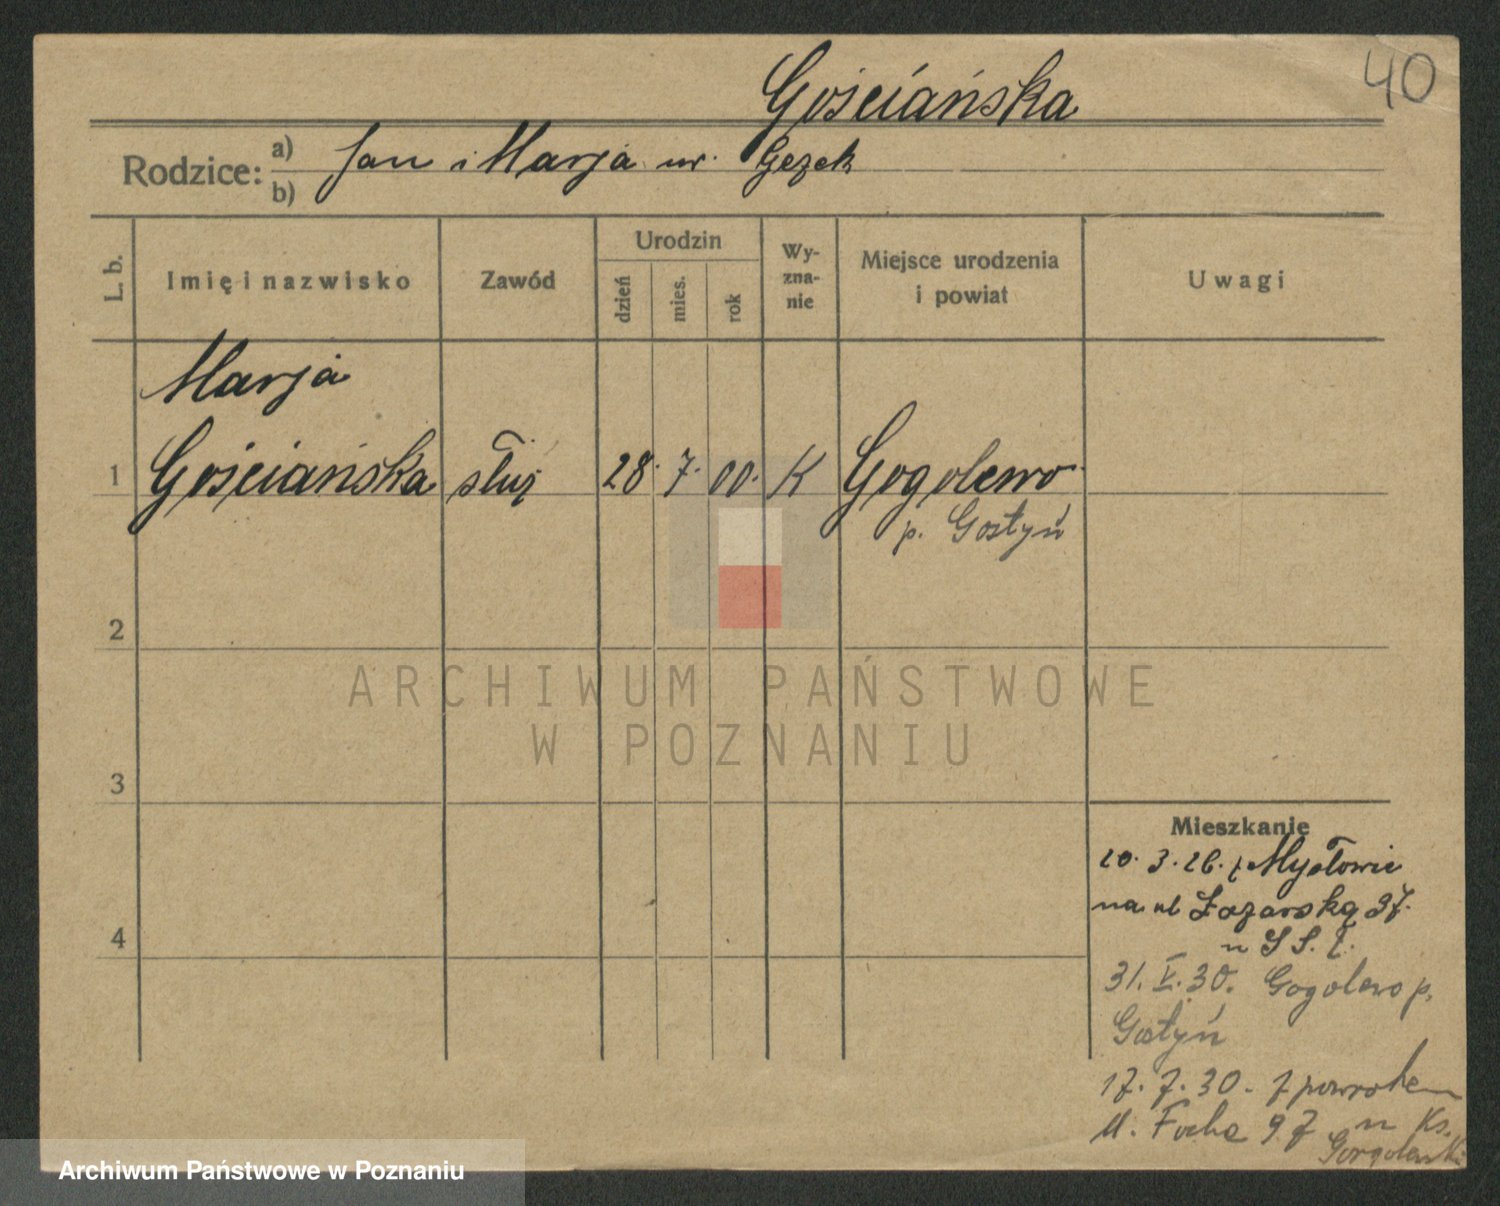 40
Gościańska
Rodzice: a) Jan i Marja ur. Gęzek
b)
L. b.
Imię i nazwisko
Zawód
Urodzin
dzień
mies.
rok
Wy-
zna-
nie
Miejsce urodzenia
i powiat
Uwagi
Marja
1 Gościańska służ 28. 7. 00. K Gogolewo
p. Gostyń
2
3
4
ARCHIWUM PAŃSTWOWE
W POZNANIU
Mieszkanie
20. 3. 26. z Mysłowic
na ul Łazarską 37.
31. V. 30. Gogolewo p.
Gostyń
17. 7. 30. z powrotem
Focha 97 u Ks.
Archiwum Państwowe w Poznaniu